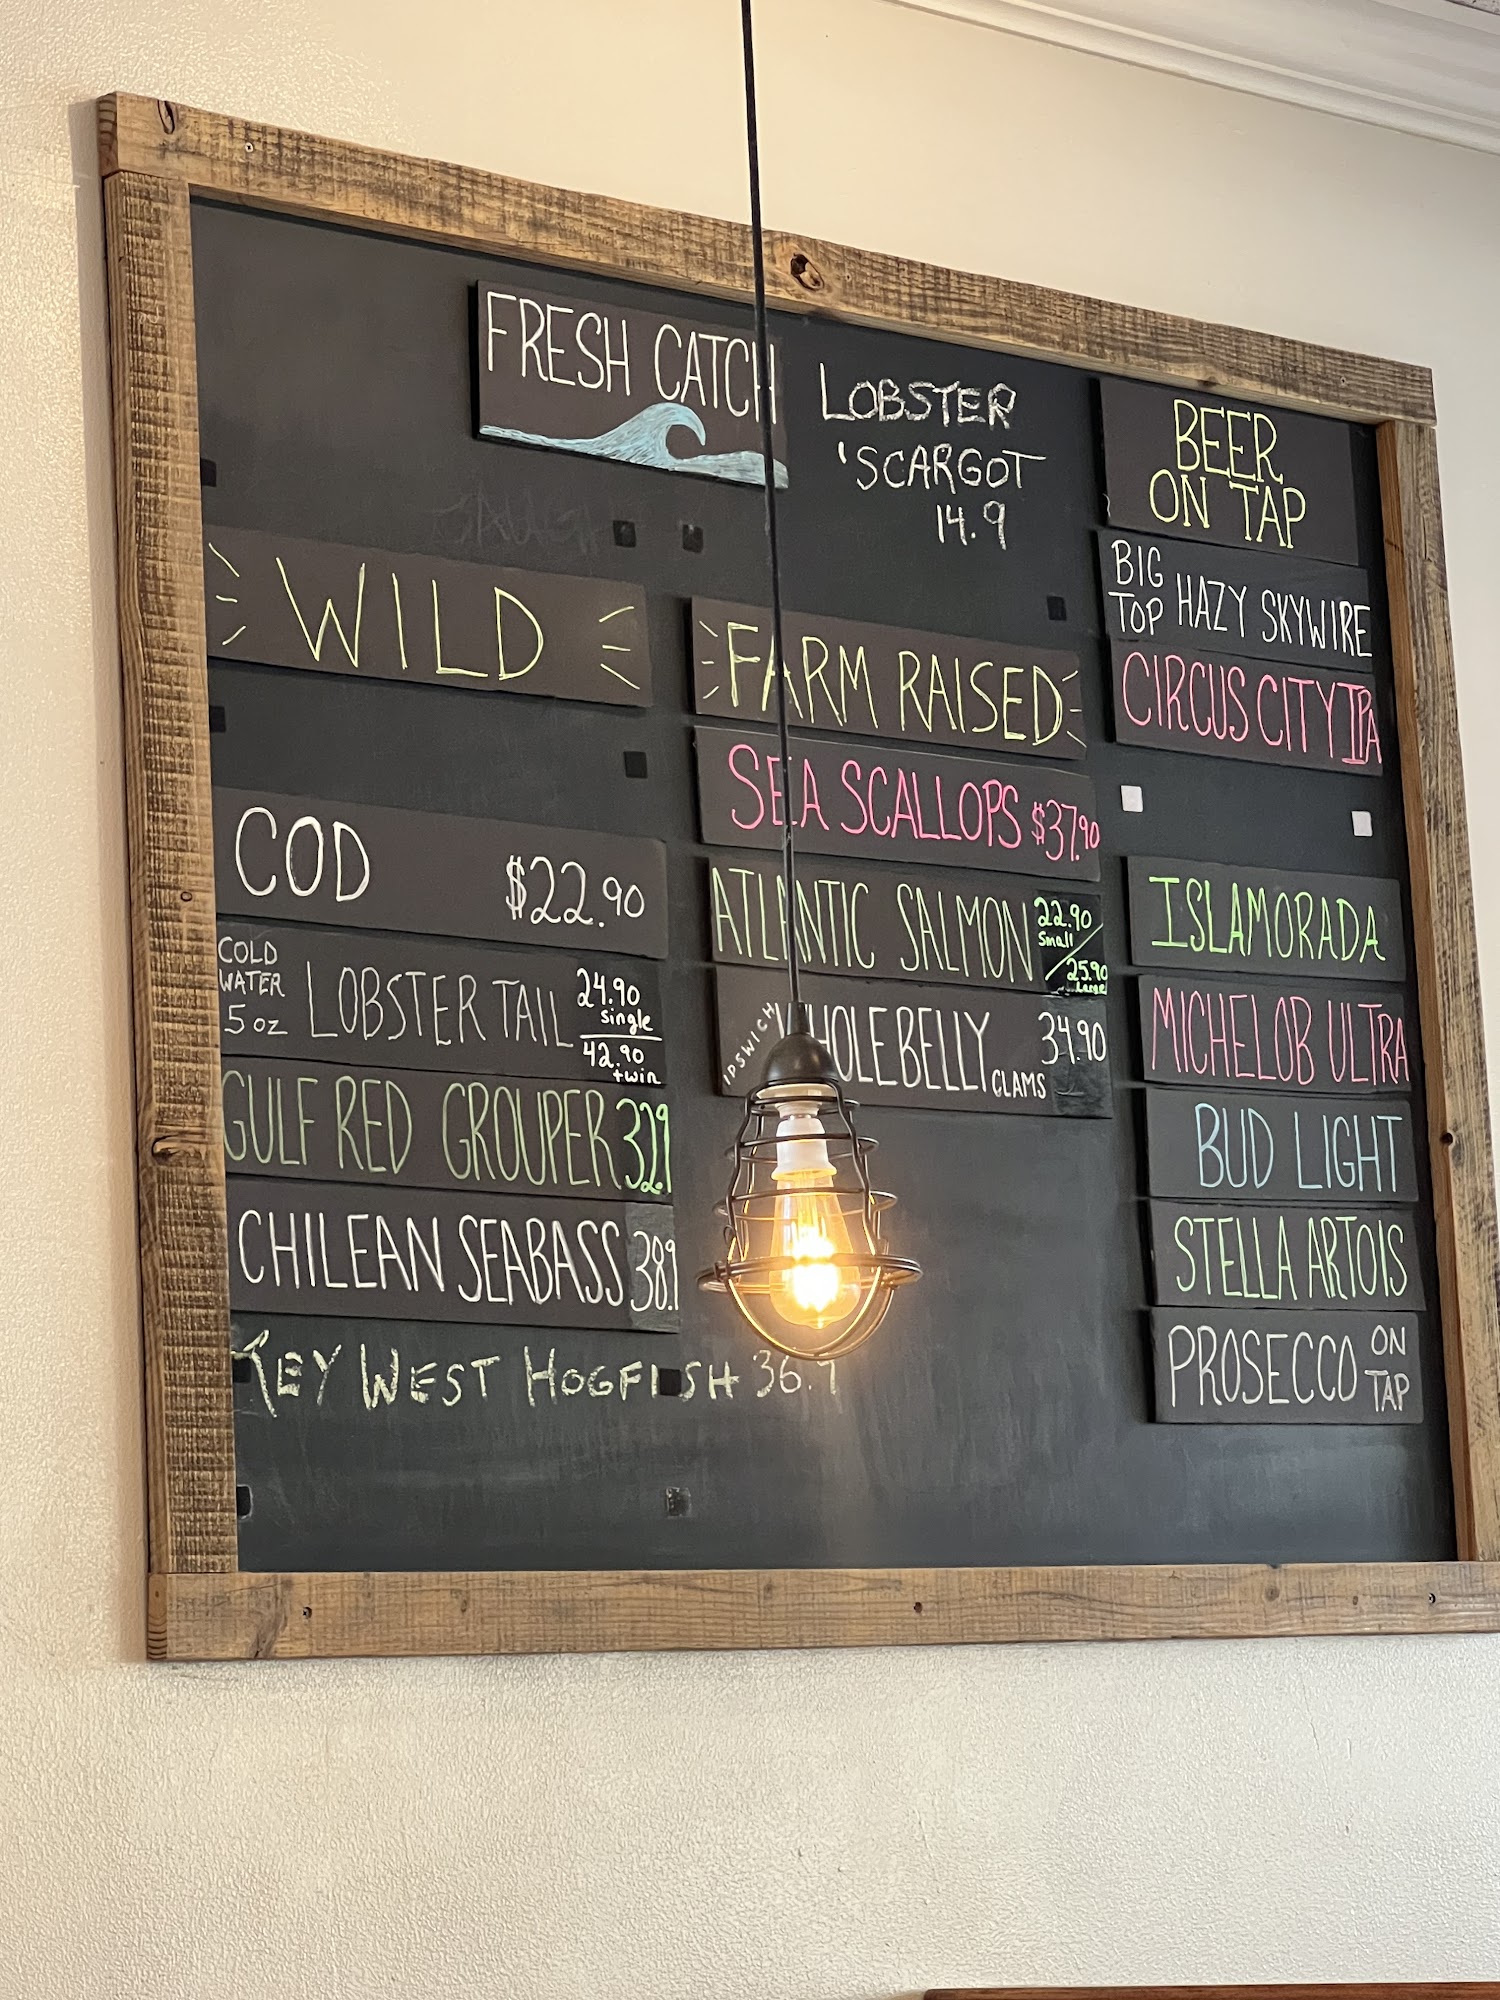 FRESH CATCH
LOBSTER
'SCARGOT
14.9
WILD
COD $22.90
COLD WATER 5 OZ LOBSTER TAIL 24.90 single 42.90 twin
GULF RED GROUPER 32.9
CHILEAN SEABASS 38.9
KEY WEST HOGFISH 36.9
FARM RAISED
SEA SCALLOPS $37.90
ATLANTIC SALMON 22.90 small / 25.90 Large
IPSWICH WHOLE BELLY CLAMS 34.90
BEER
ON TAP
BIG TOP HAZY SKYWIRE
CIRCUS CITY IPA
ISLAMORADA
MICHELOB ULTRA
BUD LIGHT
STELLA ARTOIS
PROSECCO ON TAP